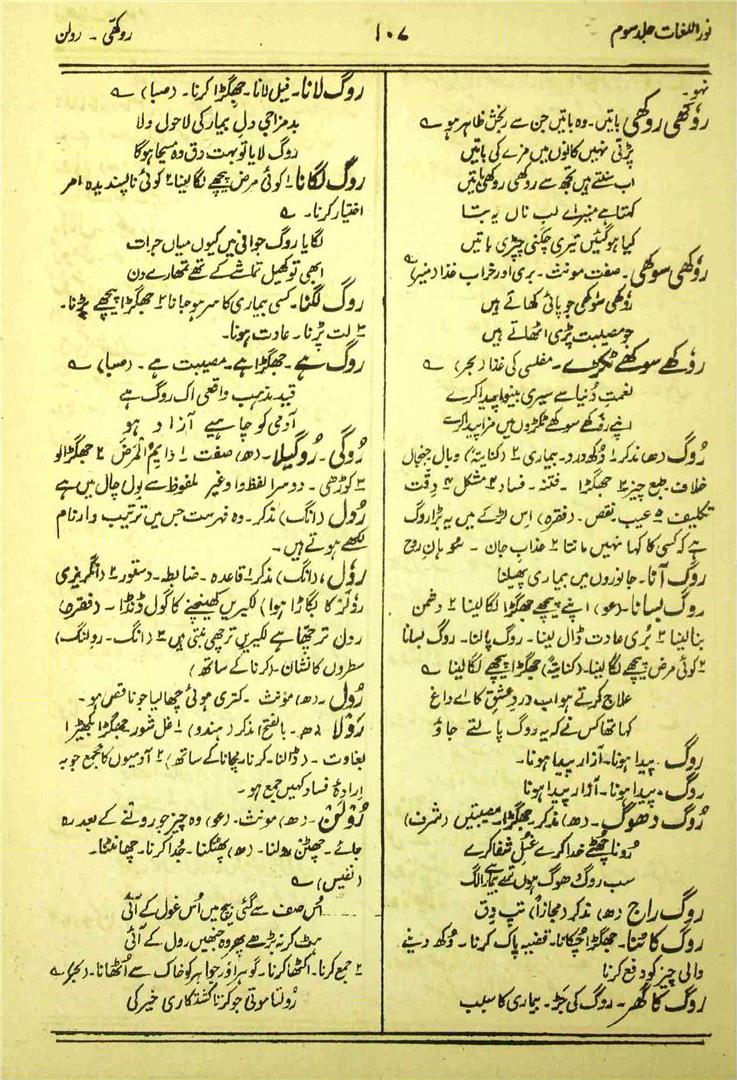 نور اللغات جلد سوم
۱۰۷
روکھی - رولن
نہو۔
روٗکھی روٗکھی باتیں۔ وہ باتیں جن سے رنجش ظاہر ہو ؎
پڑتی نہیں کانوں میں مزے کی باتیں
اب سنتے ہیں تجھ سے روکھی روکھی باتیں
کہتا ہے منیرؔ اے لب ناں یہ بتا
کیا ہوگئیں تیری چکنی چپڑی باتیں
روٗکھی سوٗکھی۔ صفت مونث۔ بری اور خراب غذا (منیر) ؎
روٗکھی سوٗکھی جو پائی کھاتے ہیں
جو مصیبت پڑی اٹھاتے ہیں
روٗکھے سوٗکھے ٹکڑے۔ مفلسی کی غذا (بحر) ؎
نعمتِ دُنیا سے سیری بینوا پیدا کرے
اپنے روٗکھے سوکھے ٹکڑوں میں مزا پیدا کرے
رُوگ (ھ) مذکر ۱ دُکھ درد۔ بیماری ۲ (کنایتہً) وبال جنجال
خلاف طبع چیز ۳ جھگڑا۔ فتنہ۔ فساد ۴ مشکل ۵ دِقّت
تکلیف ۵ عیب۔ نقص۔ (فقرہ) اِس لڑکے میں یہ بڑا روگ
ہے کہ کسی کا کہا نہیں مانتا ۶ عذابِ جان۔ سُوہانِ روح
روگ آنا۔ جانوروں میں بیماری پھیلنا
روگ بسانا۔ (عو) اپنے پیچھے جھگڑا لگا لینا ۲ دشمن
بنا لینا ۳ بُری عادت ڈال لینا۔ روگ پالنا۔ روگ بسانا
۲ کوئی مرض پیچھے لگا لینا۔ (کنایتہً) جھگڑا پیچھے لگا لینا ؎
علاج کرتے ہو اب دردِ عشق کا اے داغ
کہا تھا کس نے کہ یہ روگ پالتے جاؤ
روگ پیدا ہونا۔ آزار پیدا ہونا۔
روگ پیدا ہونا۔ آزار پیدا ہونا
رُوگ دھوگ۔ (ھ) مذکر۔ جھگڑا۔ مصیبتیں (شرف)
رُونا چھٹے خدا کرے غسلِ شفا کرے
سب روگ دھوگ ہوں تیرے بیمار سے الگ
روگ راج (ھ) مذکر (مجازاً) تپ دِق
روگ کاٹنا۔ جھگڑا چُکانا۔ قضیہ پاک کرنا۔ دُکھ دینے
والی چیز کو دفع کرنا
روگ کا گھر۔ روگ کی جَڑ۔ بیماری کا سبب
روگ لانا۔ فیل لانا۔ جھگڑا کرنا۔ (صبا) ؎
بدمزاجی دلِ بیمار کی لاحول ولا
روگ لایا تو بہت دق وہ مسیحا ہوگا
روگ لگانا ۱ کوئی مرض پیچھے لگا لینا ۲ کوئی ناپسندیدہ امر
اختیار کرنا۔ ؎
لگایا روگ جوانی میں کیوں میاں جرات
ابھی تو کھیل تماشے کے تھے تمھارے دن
روگ لگنا۔ کسی بیماری کا سر ہو جانا ۲ جھگڑا پیچھے پڑنا۔
۳ لت پڑنا۔ عادت ہونا۔
روگ ہے۔ جھگڑا ہے۔ مصیبت ہے۔ (صبا) ؎
قید مذہب واقعی اک روگ ہے
آدمی کو چاہیے آزاد ہو
رُوگی۔ رُوگیلا۔ (ھ) صفت ۱ دایم المرض ۲ جھگڑالو
۳ کوڑھی۔ دوسرا لفظ واو غیر ملفوظ سے بول چال میں ہے
رُول (انگ) مذکر۔ وہ فہرست جس میں ترتیب وار نام
لکھے ہوتے ہیں۔
روٗل، (انگ) مذکر ۱ قاعدہ۔ ضابطہ۔ دستور ۲ (انگریزی
روٗلَر کا بگاڑا ہوا) لکیریں کھینچنے کا گول ڈنڈا۔ (فقرہ)
رول ترچھا ہے لکیریں ترچھی بنتی ہیں ۳ (انگ۔ رولنگ)
سطروں کا نشان۔ (کرنا کے ساتھ)
رُول۔ (ھ) مونث۔ کتری ہوئی چھالیا جو ناقص ہو۔
رَوْلا (ھ۔ بالفتح) مذکر (ہندو) ۱ غل شور۔ جھگڑا بکھیڑا
بغاوت۔ (ڈالنا۔ کرنا۔ مچانا کے ساتھ) ۲ آدمیوں کا مجمع جو بہ
ارادۂ فساد کہیں جمع ہو۔
رُولَن۔ (ھ) مونث۔ (عو) وہ چیز جو رولنے کے بعد رہ
جائے۔ چھٹن۔ رولنا۔ (ھ) پھٹکنا۔ جُدا کرنا۔ چھانٹنا۔
(نفیس) ؎
اُس صف سے گئی بیچ میں اُس غول کے آئی
ہٹ کر نہ بڑھے پھر وہ جنھیں رول کے آئی
۲ جمع کرنا۔ اکٹھا کرنا۔ گوہر اور جواہر کو خاک سے اُٹھانا۔ (بحر) ؎
رُولتا موتی جو کرتا کشتکاری خیر کی